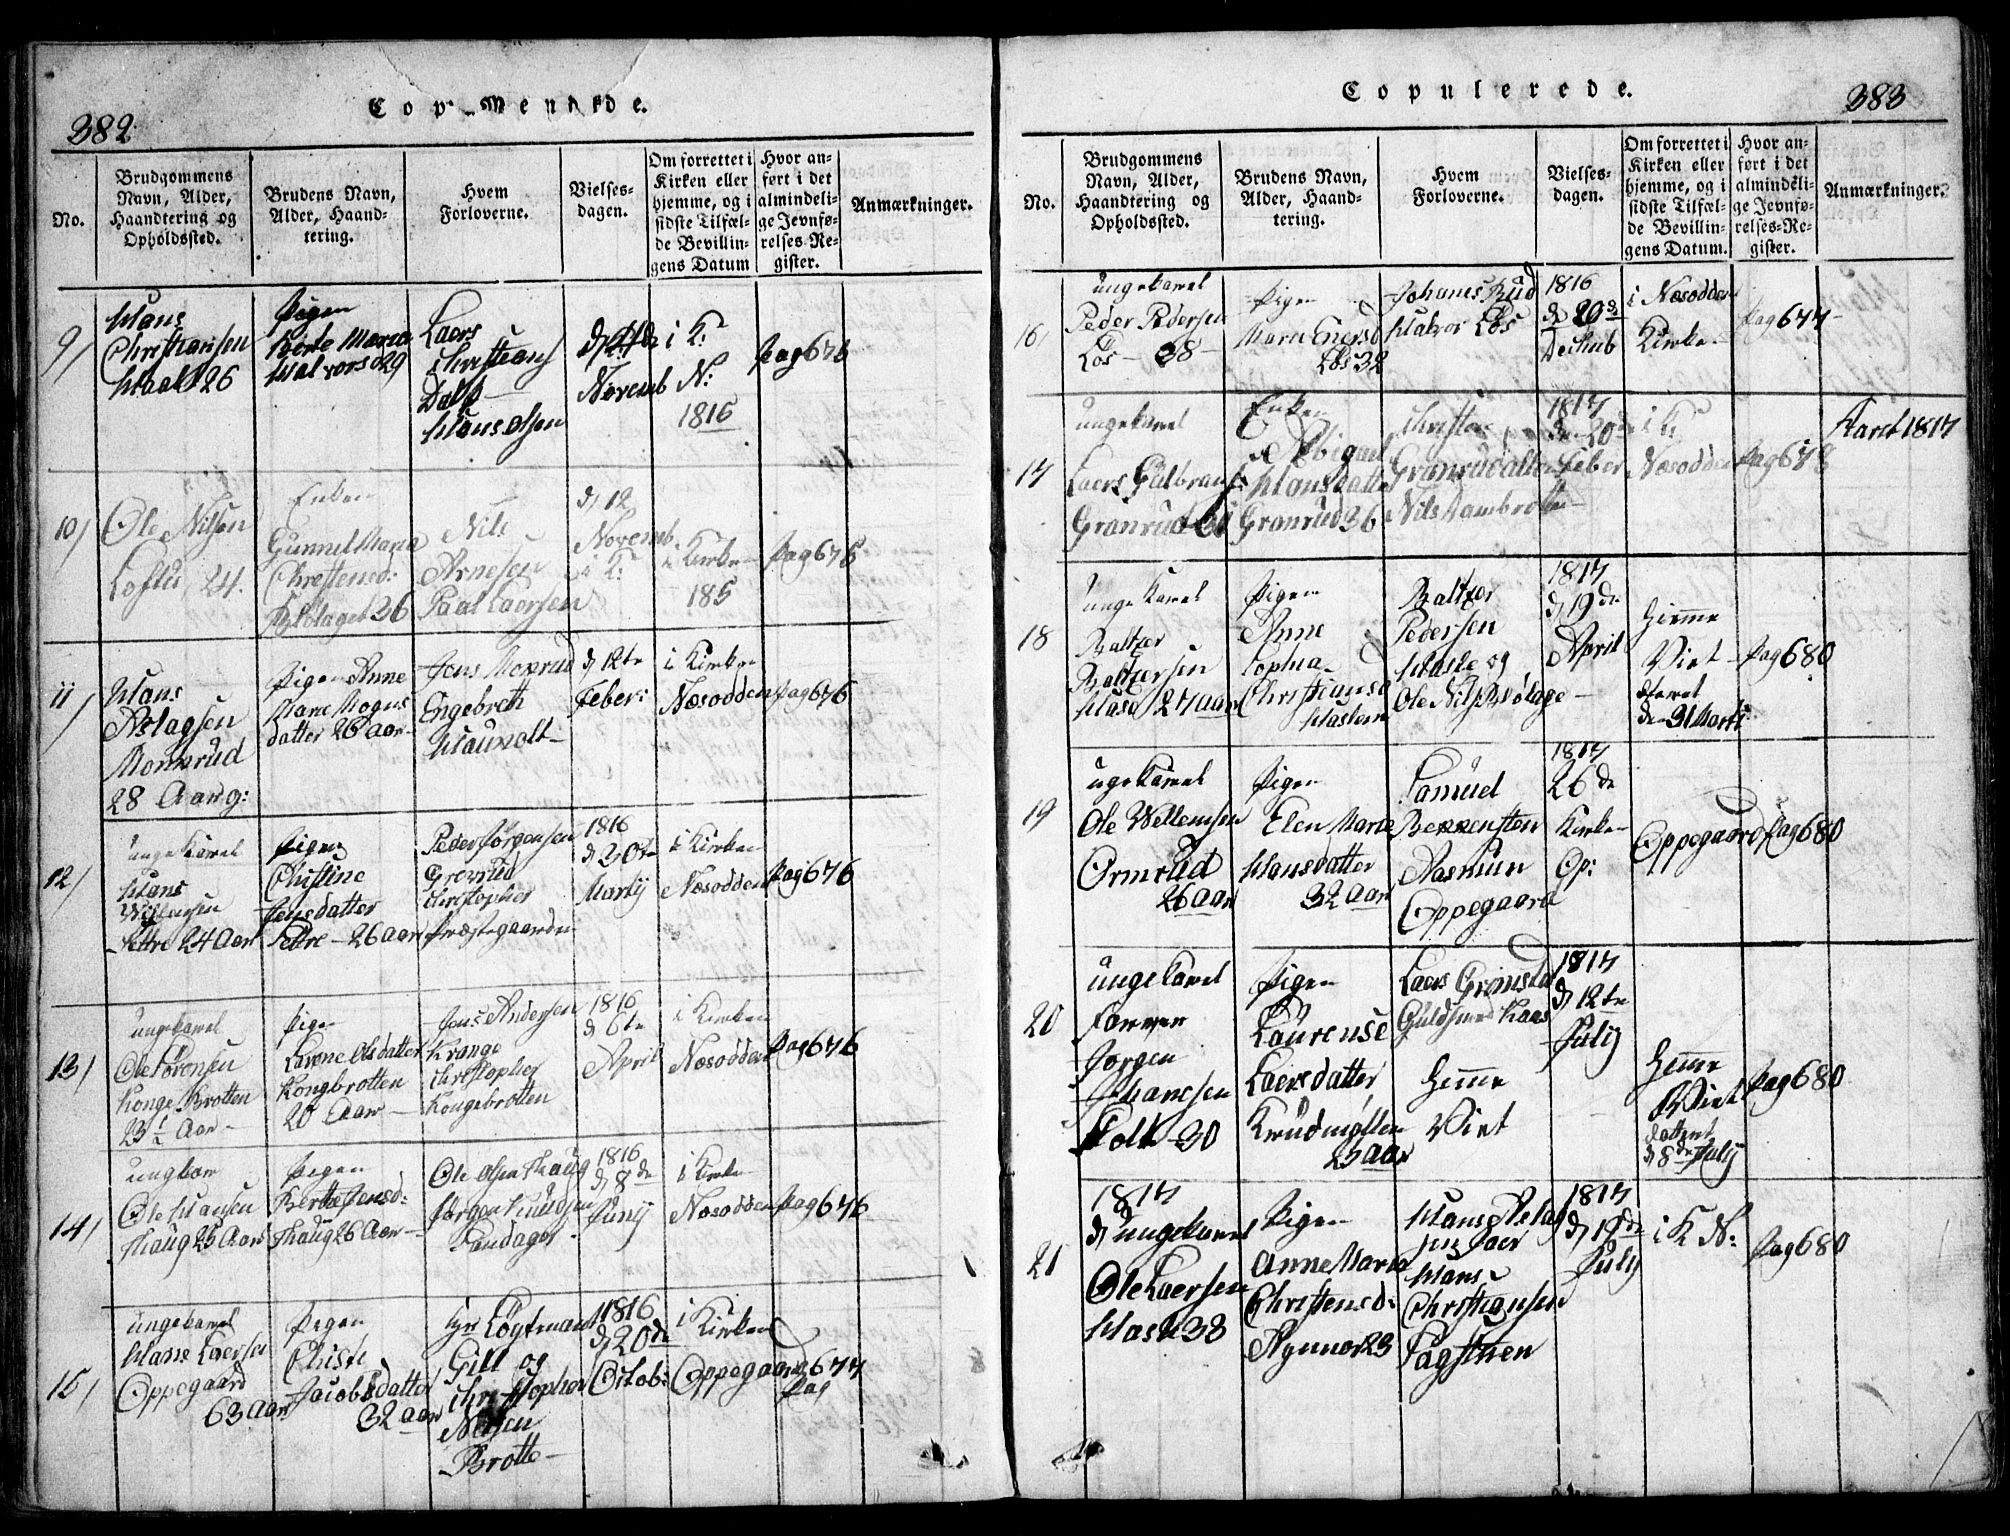 382.
No.
Brudgommens
Navn, Alder,
Haandtering og
Opholdssted.
Brudens Navn,
Alder, Haand-
tering.
Hvem
Forloverne.
Vielses-
dagen.
Om forrettet i
Kirken eller
hjemme, og i
sidste Tilfæl-
de Bevillin-
gens Datum
Hvor an-
ført i det
almindeli-
ge Jevnfø-
relses-Re-
gister.
Anmærkninger.
9/
Hans
Christiansen
26
Pigen
Berte Maria
Halvorsd 29
Laers
Christians
Hans Olsen
Novemb
i K:
N:
1816
Pag 676
10/
Ole Nilsen
Loftu, 24.
Enken
Gunnel Maria
Christensd:
26
Nils
Arnesen
Paal Laersen
d 12
Novemb
i K:
i Kirke
185
Pag 676
11/
Hans
Aslagsen
Monnrud
28 Aar g:
Pigen Anne
Marie Mogns
datter 26 Aar
Jens Monrud
Engebreth
d 12te
Feber:
i Kirken
Næsodden
Pag 676
12/
ungekarel
Hans
Willumsen
24 Aar
Pigen
Christine
Jensdatter
26 Aar
Peder Jörgensen
Grevrud
Christopher
Præstegaarden
1816
d 20te
Martij
i Kirken
Næsodden
Pag 676
13/
ungekarel
Ole Sörensen
Konge Brotten
23½ Aar
Pigen
Larene Olsdatter
Kongbrotten
20 Aar
Jens Andersen
Krange
Christopher
Kongebrotten
1816
d 6te
April
i Kirken
Næsodden
Pag 676
14/
ungkar
Ole Hansen
Haug 25 Aar
Pigen
Berthe Jensd:
Haug 26 Aar
Ole Olsen Haug
Jörgen Knudsen
1816
d 8de
Junij
i Kirke
Næsodden
Pag 676
15/
ungekarel
Hans Laersen
Oppegaard
63 Aar
Pigen
Christi
Jacobsdatter
32 Aar
Hr: Löytnant
Gill og
Christopher
Nilsen
Brotte
1816
d 20de
Octob:
i Kirken
Oppegaard
677
Pag
Copulerede.
383
No.
Brudgommens
Navn, Alder,
Haandtering og
Opholdssted.
Brudens Navn,
Alder, Haand-
tering.
Hvem
Forloverne.
Vielses-
dagen.
Om forrettet i
Kirken eller
hjemme, og i
sidste Tilfæl-
de Bevillin-
gens Datum.
Hvor an-
ført i det
almindeli-
ge Jevnfø-
relses-Re-
gister.
Anmærkninger.
16/
ungekarel
Peder Pedersen
Lös 38
Pigen
Maria Enersd
Lös 32
Johanes Rud
Halvor Lös
1816
d 20de
Decemb
i Næsodden
Kirke
Pag 677
17
ungekarel
Laers Gulbrands
Granrud 30
Enken
Abigael
Hansdatter
Granrud 36
Christen
Granrud
Nils Dambrotten
1817
den 20de
Feber
i K:
Næsodden
Pag 678
Aaret 1817
18
unge Karel
Baltzer
Baltzersen
27 aar
Pigen
Anne
Sophia
Christiansd
Haslem
Baltzer
Pedersen
Hasle og
Ole Nils Blölage
1817
d 19de
April
Hiemme
Viet
dateret
den 31 Marti
Pag 680
19
ugekarel
Ole Wellemsen
Ormrud
26 aar
Pigen
Elen Marie
Hansdatter
32 Aar
Samuel
Bekkensten
Rasmus
Oppegaard
1817
26de
Kirken
Op:
Oppegaard
Pag 680
20
ungekarel
Jorgen
Hansen
30
Pigen
Laurense
Laersdatter
Krudmöllen
23 aar
Laers Grönsta
Guldsmed Haas
Hieme
Viet
1817
d 12te
July
Hieme
Viet
dattert
d 8de July
Pag 680
21
1817
d ungekarel
Ole Laersen
Hasle 38
Pigen
Anne Maria
Christensd:
Agnnor 23
Hans Aslag
sen Joer
Hans
Christiansen
Fagstuen
1817
July
i K N:
Pag 680